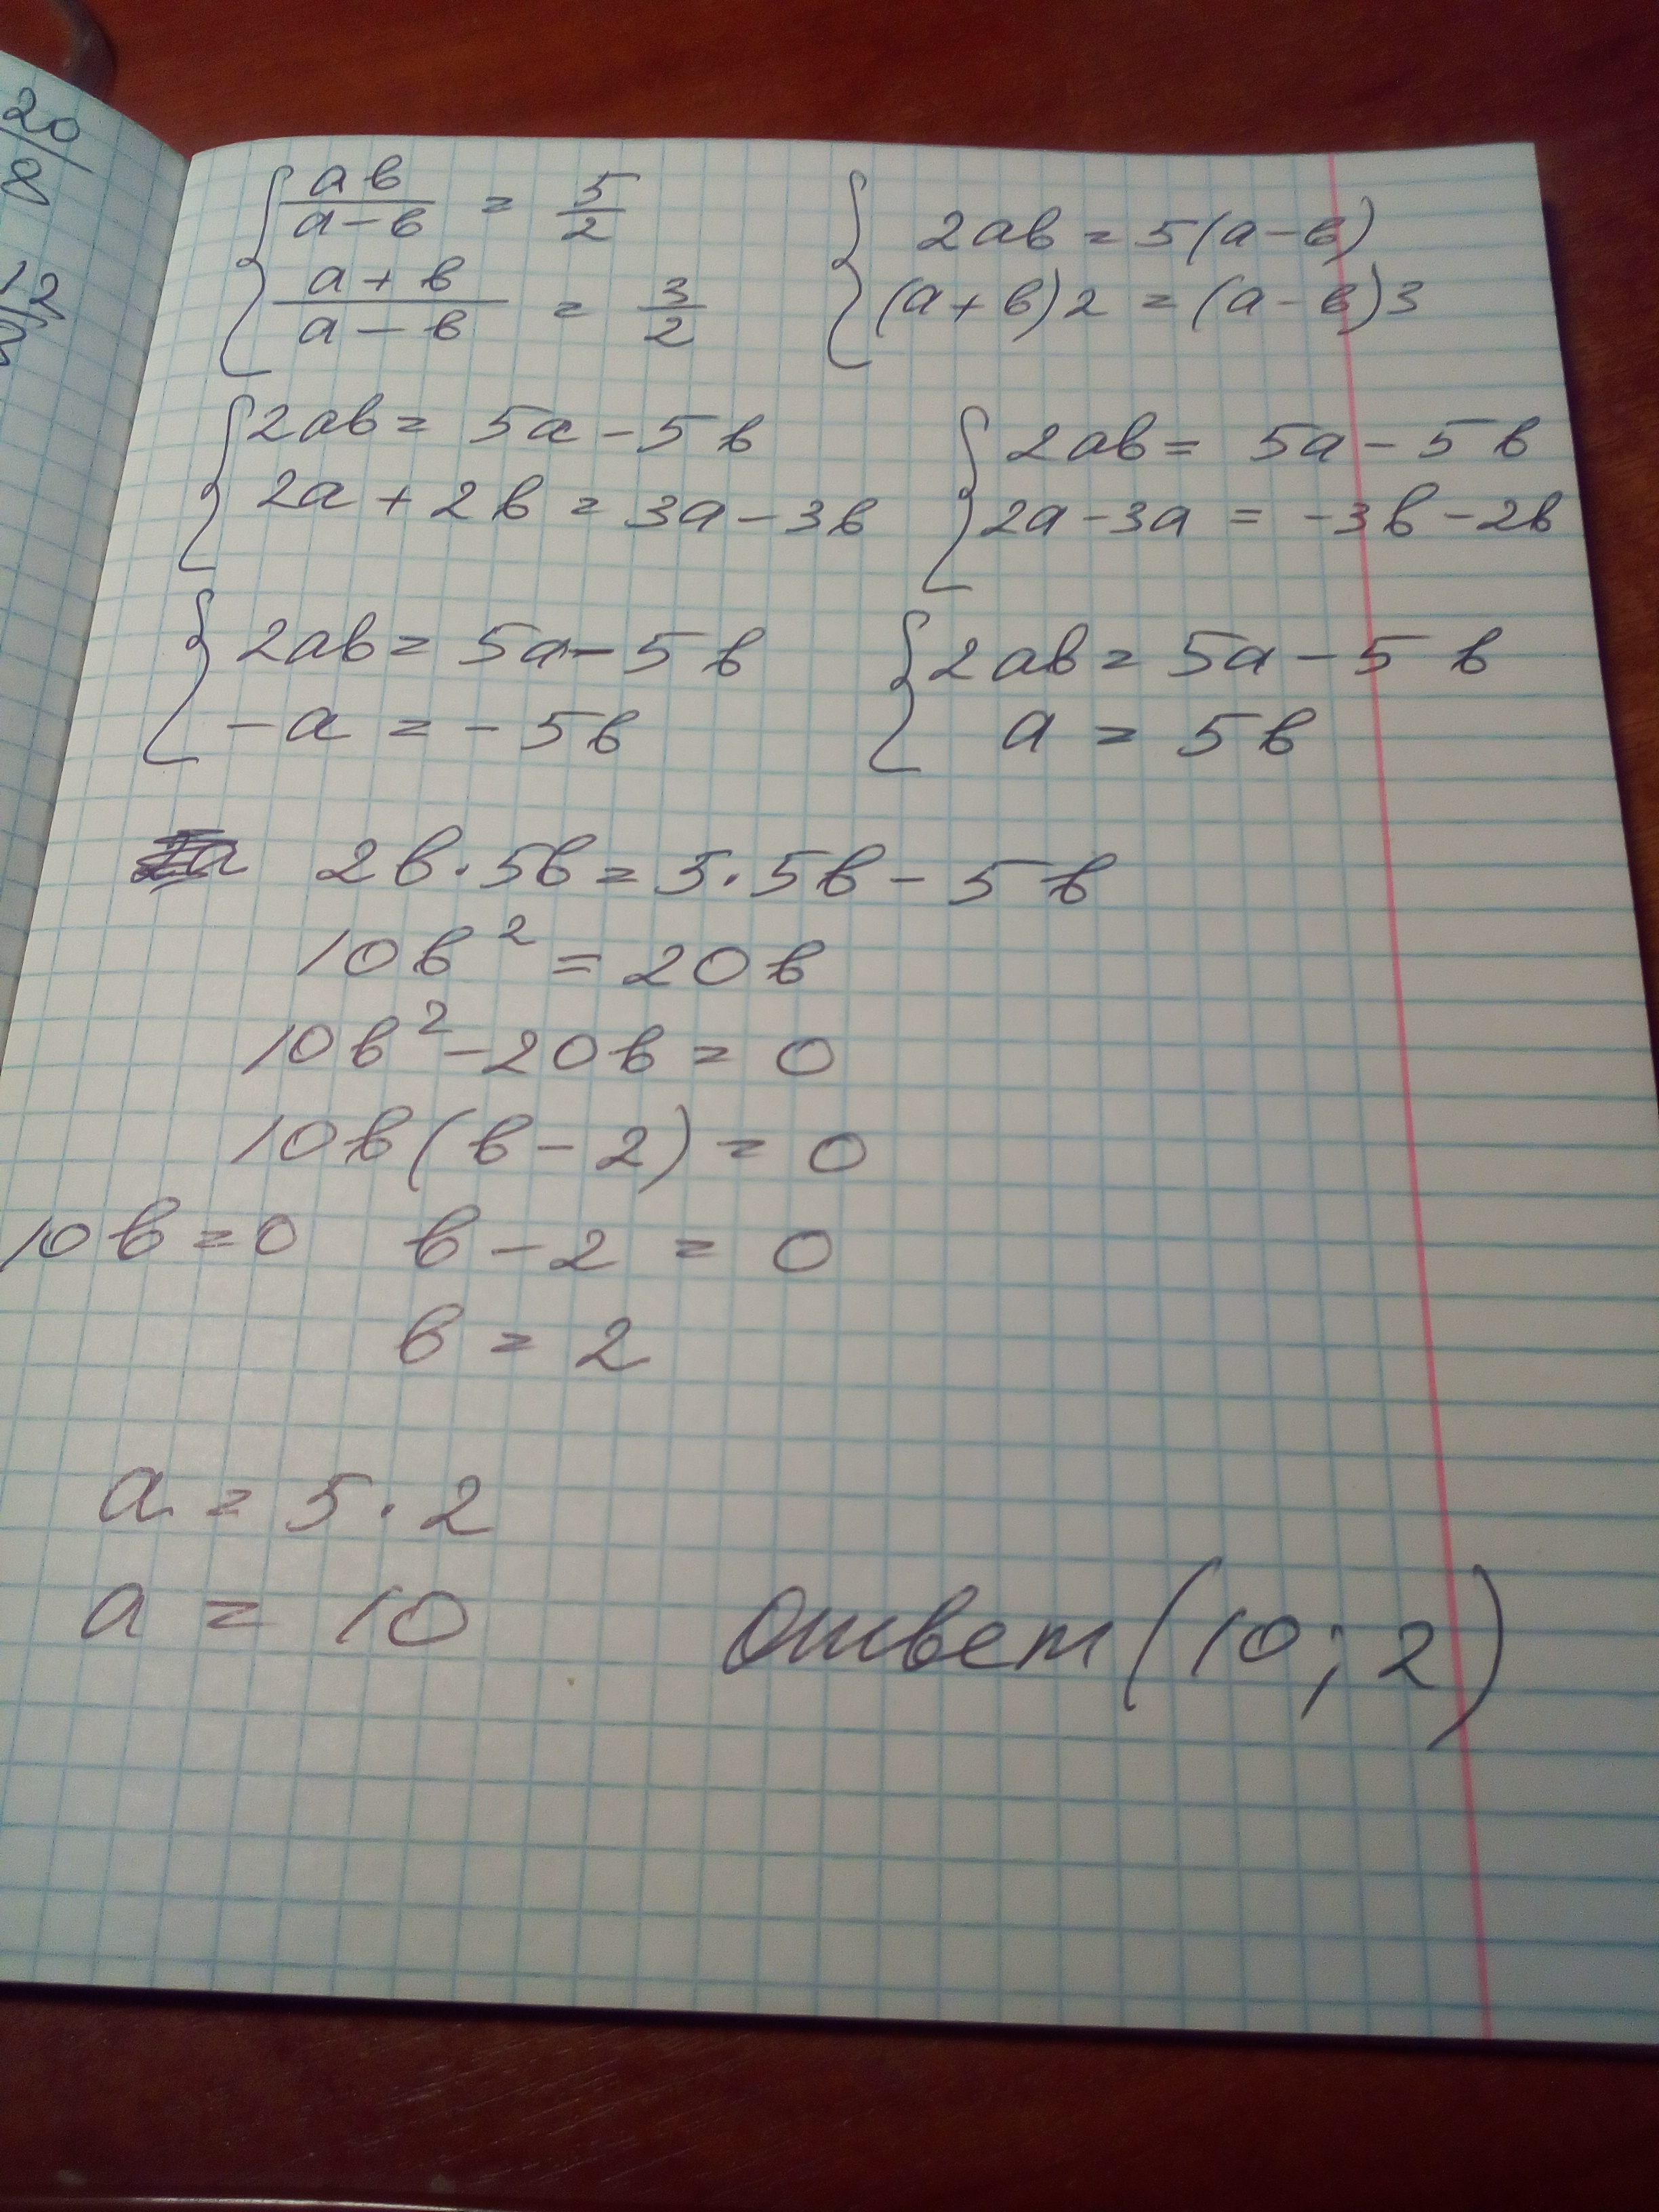 20
8
12
{ ab/(a-b) = 5/2    { 2ab = 5(a-b)
{ (a+b)/(a-b) = 3/2    { (a+b)2 = (a-b)3
{ 2ab = 5a - 5b    { 2ab = 5a - 5b
{ 2a + 2b = 3a - 3b    { 2a - 3a = -3b - 2b
{ 2ab = 5a - 5b    { 2ab = 5a - 5b
{ -a = -5b    { a = 5b
2b · 5b = 5 · 5b - 5b
10b² = 20b
10b² - 20b = 0
10b(b - 2) = 0
10b = 0    b - 2 = 0
b = 2
a = 5 · 2
a = 10    Ответ (10; 2)